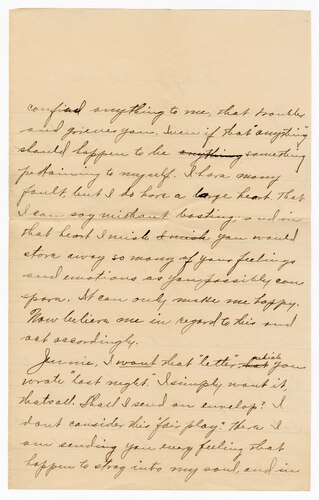 confied anything to me, that troubles
and grieves you. Even if that "anything"
should happen to be anything something
pertaining to myself. I have many
fault, but I do have a large heart, that
I can say without boasting, and in
that heart I wish I wish you would
store away so many of your feelings
and emotions as you possibly can
spare. It can only make me happy.
Now believe me in regard to this and
act accordingly.
Jennie, I want that "letter", which you
wrote "last night." I simply want it,
thats all. Shall I send an envelop? I
dont consider this "fair play." Here I
am sending you every feeling that
happen to stray into my soul, and in